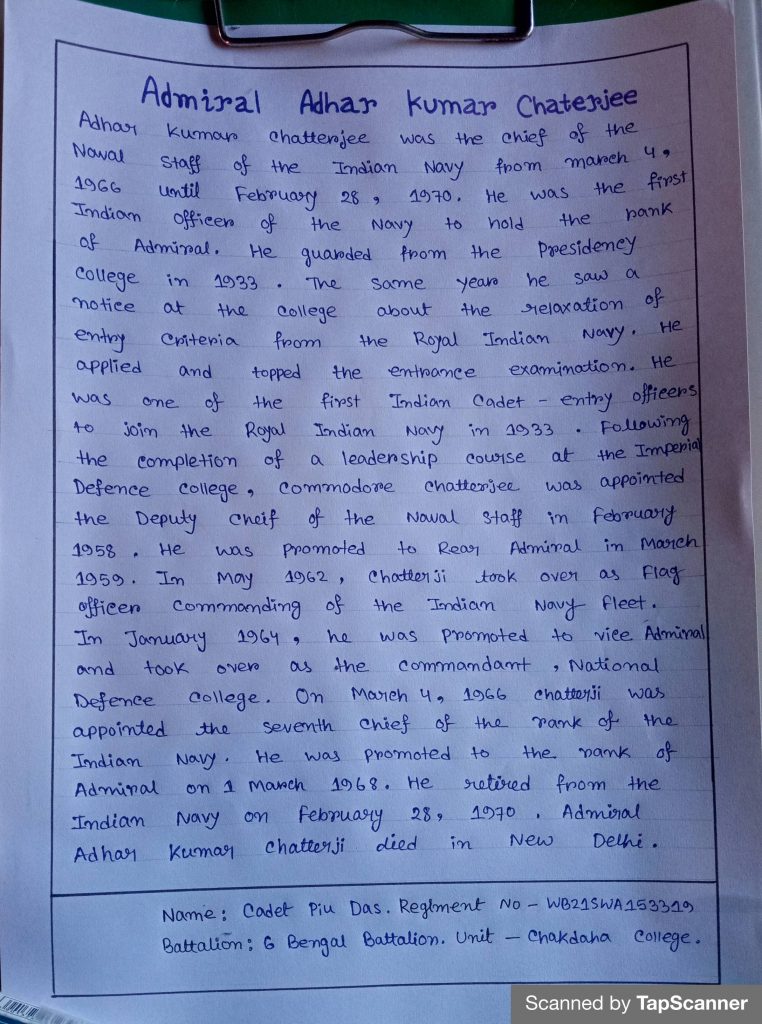 Admiral Adhar Kumar Chaterjee
Adhar Kumar Chatterjee was the Chief of the
Naval Staff of the Indian Navy from march 4,
1966 until February 28, 1970. He was the first
Indian officer of the Navy to hold the rank
of Admiral. He guarded from the Presidency
College in 1933. The same year he saw a
notice at the college about the relaxation of
entry criteria from the Royal Indian Navy. He
applied and topped the entrance examination. He
was one of the first Indian Cadet - entry officers
to join the Royal Indian Navy in 1933. Following
the completion of a leadership course at the Imperial
Defence College, Commodore Chatterjee was appointed
the Deputy Cheif of the Naval Staff in February
1958. He was promoted to Rear Admiral in March
1959. In May 1962, Chatterji took over as Flag
officer Commanding of the Indian Navy Fleet.
In January 1964, he was promoted to vice Admiral
and took over as the Commandant, National
Defence College. On March 4, 1966 Chatterji was
appointed the seventh Chief of the rank of the
Indian Navy. He was promoted to the rank of
Admiral on 1 March 1968. He retired from the
Indian Navy on February 28, 1970. Admiral
Adhar Kumar Chatterji died in New Delhi.
Name: Cadet Piu Das. Regiment No - WB21SWA153319
Battalion: 6 Bengal Battalion. Unit - Chakdaha College.
Scanned by TapScanner